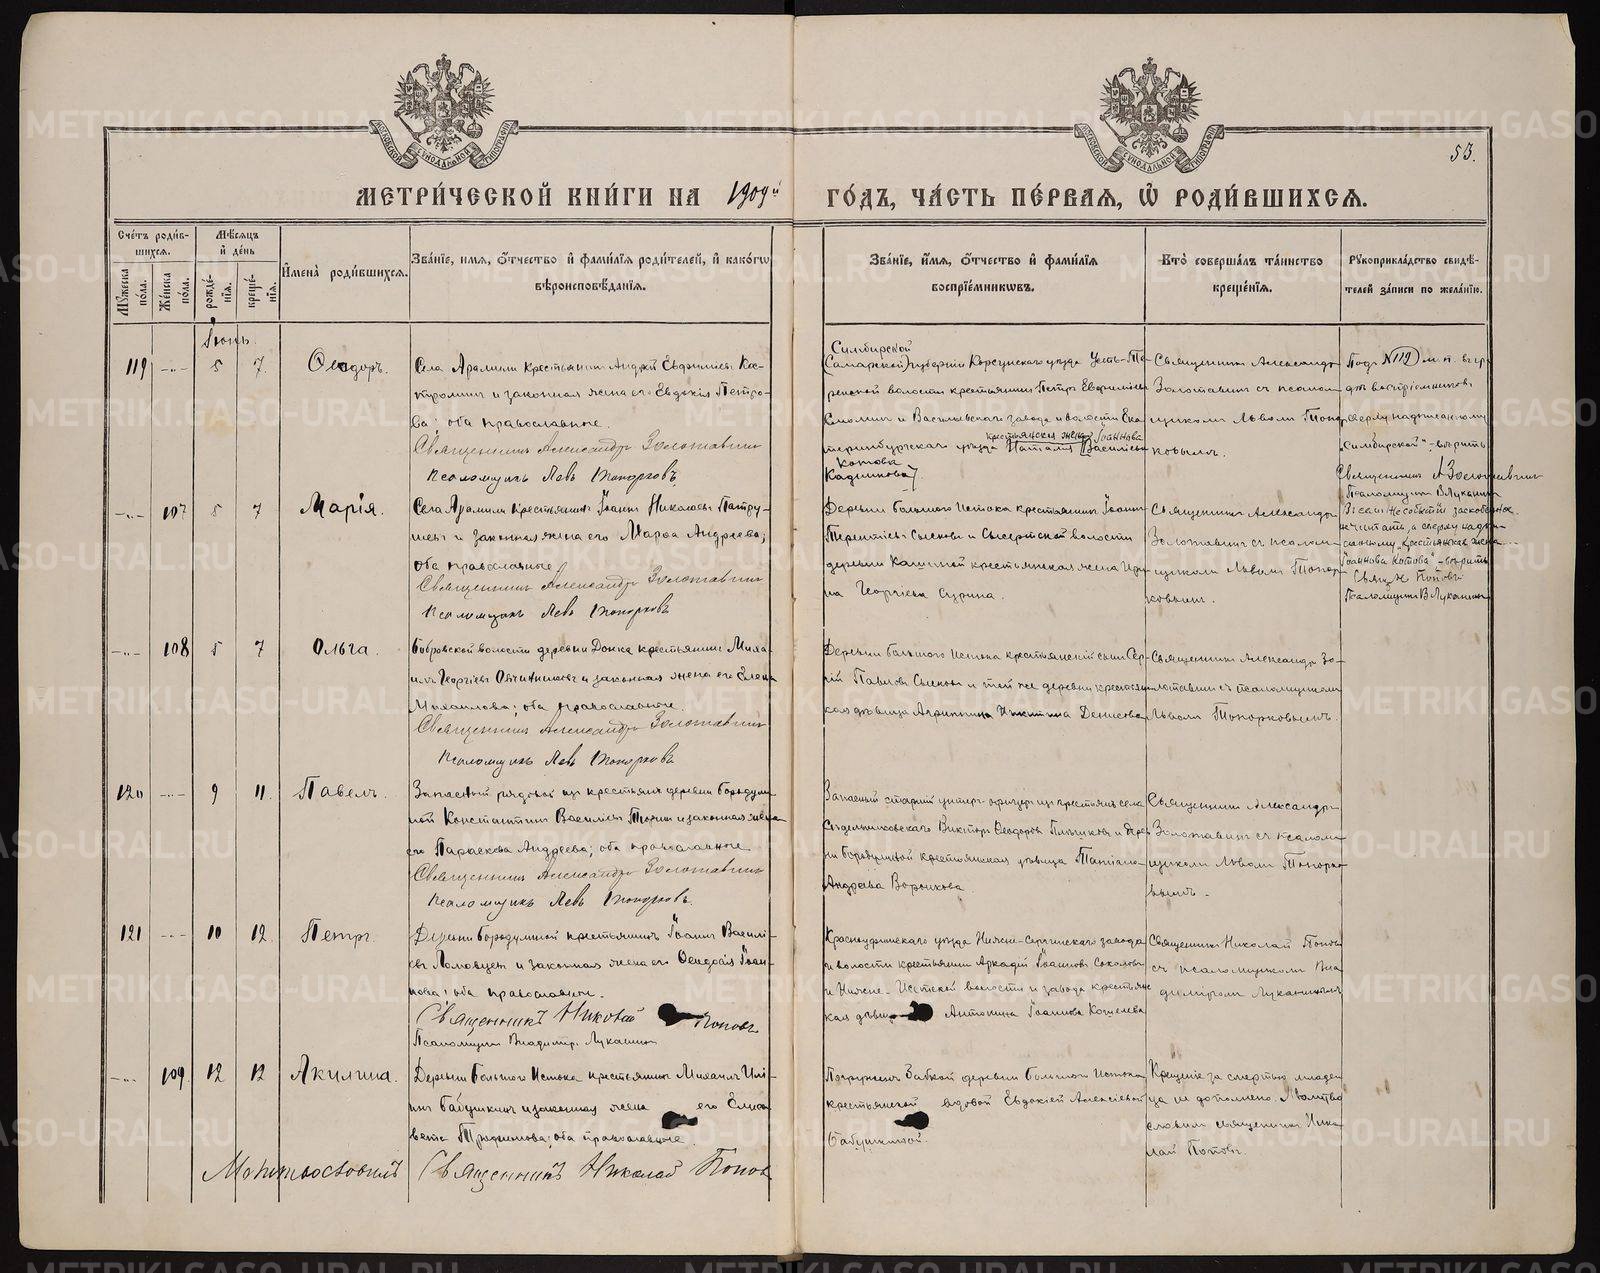 МОСКОВСКОЙ СѴНОДАЛЬНОЙ ТИПОГРАФІИ
МОСКОВСКОЙ СѴНОДАЛЬНОЙ ТИПОГРАФІИ
53.
МЕТРИ́ЧЕСКОЙ КНИ́ГИ НА 1909й ГО́ДЪ, ЧА́СТЬ ПЕ́РВАЯ, Ѡ РОДИ́ВШИХСЯ.
Счётъ роди́вшихся.
Мꙋжеска по́ла.
Же́нска по́ла.
Мѣ́сяцъ и де́нь
рожде́нія.
креще́нія.
Имена̀ роди́вшихся.
Зва́ніе, имя, ѻтчество и фами́лія роди́телей, и како́гѡ
вѣроисповѣ́данія.
Зва́ніе, и́мя, ѻтчество и фами́лія
воспріе́мникѡвъ.
Кто̀ соверша́лъ та́инство
креще́нія.
Рꙋкоприкла́дство свидѣ́-
телей за́писи по жела́нію.
Іюнь.
119 -„- 5 7 Ѳеодоръ.
Села Арамили крестьянинъ Андрей Евфиміевъ Кос-
тромин и законная жена его Евдокія Петро-
ва; оба православные.
Священникъ Александръ Золотавинъ
Псаломщикъ Левъ Топорковъ
Симбирской
(Самарской) губерніи Корсунскаго уѣзда Усть-
ренской волости крестьянинъ Петръ Евфиміевъ
и Васильевскаго завода и волости Ека-
крестьянская жена Іоаннова
теринбургскаго уѣзда Наталія [Васильева
Котова
Священникъ Александръ
Золотавинъ съ псалом-
щикомъ Львомъ Топор-
ковымъ.
Подъ №119 м. п. въ гра-
фѣ воспріемниковъ
сверху надписанному
„Симбирской“ - вѣрить
Священникъ А Золотавинъ
Псаломщикъ В Лукашинъ
-„- 107 5 7 Марія.
Села Арамили крестьянинъ Іоаннъ Николаевъ Патру-
шевъ и законная жена его Марѳа Андреева;
оба православные
Священникъ Александръ Золотавинъ
Псаломщикъ Левъ Топорковъ
Деревни Большого Истока крестьянинъ Іоаннъ
Терентіевъ и Сысертской волости
деревни крестьянская жена Ири-
на Георгіева Сурина.
Священникъ Александръ
Золотавинъ съ псалом-
щикомъ Львомъ Топор-
ковымъ.
не считать, а сверху надпи-
санному „крестьянская жена
Іоаннова Котова“ - вѣрить
Свящ. Н Поповъ
Псаломщикъ В Лукашинъ
-„- 108 5 7 Ольга.
Бобровской волости деревни крестьянинъ Миха-
илъ Георгіевъ Овчинниковъ и законная жена его Елена
Михаилова; оба православные.
Священникъ Александръ Золотавинъ
Псаломщикъ Левъ Топорковъ
Деревни Большого Истока крестьянскій сынъ Сер-
гій Павловъ и той же деревни крестьян-
ская дѣвица Агриппина Никитина Денисова
Священникъ Александръ Зо-
лотавинъ съ псаломщикомъ
Львомъ Топорковымъ.
120 -„- 9 11. Павелъ.
Запасный рядовой изъ крестьянъ деревни Бороду-
ной Константинъ Василіевъ и законная жена
его Параскева Андреева; оба православные
Священникъ Александръ Золотавинъ
Псаломщикъ Левъ Топорковъ.
Запасный старшій унтеръ-офицеръ изъ крестьянъ села
Викторъ Ѳеодоровъ и дерев-
ни крестьянская дѣвица Татіана
Андреева Воронкова.
Священникъ Александръ
Золотавинъ съ псалом-
щикомъ Львомъ Топорко-
вымъ.
121 -„- 10 12. Петръ.
Деревни крестьянинъ Іоаннъ Василі-
евъ и законная жена его Ѳеодосія Іоан-
нова; оба православные.
Священникъ Николай Поповъ
Псаломщикъ Владиміръ Лукашинъ
Красноуфимскаго уѣзда Нижне-Сергинскаго завода
и волости крестьянинъ Аркадій Іоанновъ Соколовъ
и Нижне-Исетской волости и завода крестьянс-
кая дѣвица Антонина Іоаннова Кошелева
Священникъ Николай Поповъ
съ псаломщикомъ Вла-
диміромъ Лукашинымъ
-„- 109 12 12 Акилина.
Деревни Большого Истока крестьянинъ Михаилъ Илі-
инъ Бабушкинъ и законная жена его Елиса-
вета Трофимова; оба православные.
Молитвословилъ Священникъ Николай Поповъ
Погружена бабкой деревни Большого Истока
крестьянской вдовой Евдокіей Алексіевой
Бабушкиной.
Крещеніе за смертью младен-
ца не дополнено. Молитво-
словилъ священникъ Нико-
лай Поповъ.
METRIKI.GASO-URAL.RU